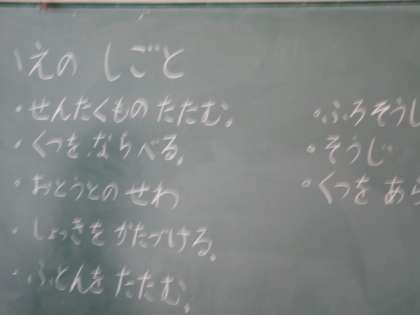 いえの しごと
・せんたくものたたむ。
・くつを ならべる。
・おとうとの せわ
・しょっきを かたづける。
・ふとんを たたむ。
・ふろそうじ
・そうじ
・くつを あら